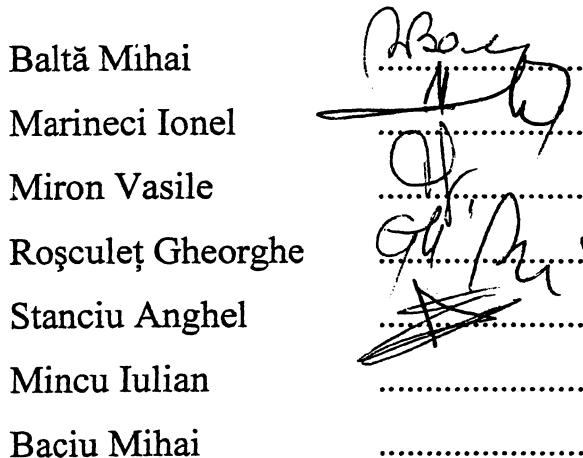 Baltă Mihai ....................
Marineci Ionel ....................
Miron Vasile ....................
Roşculeț Gheorghe ....................
Stanciu Anghel ....................
Mincu Iulian ....................
Baciu Mihai ....................